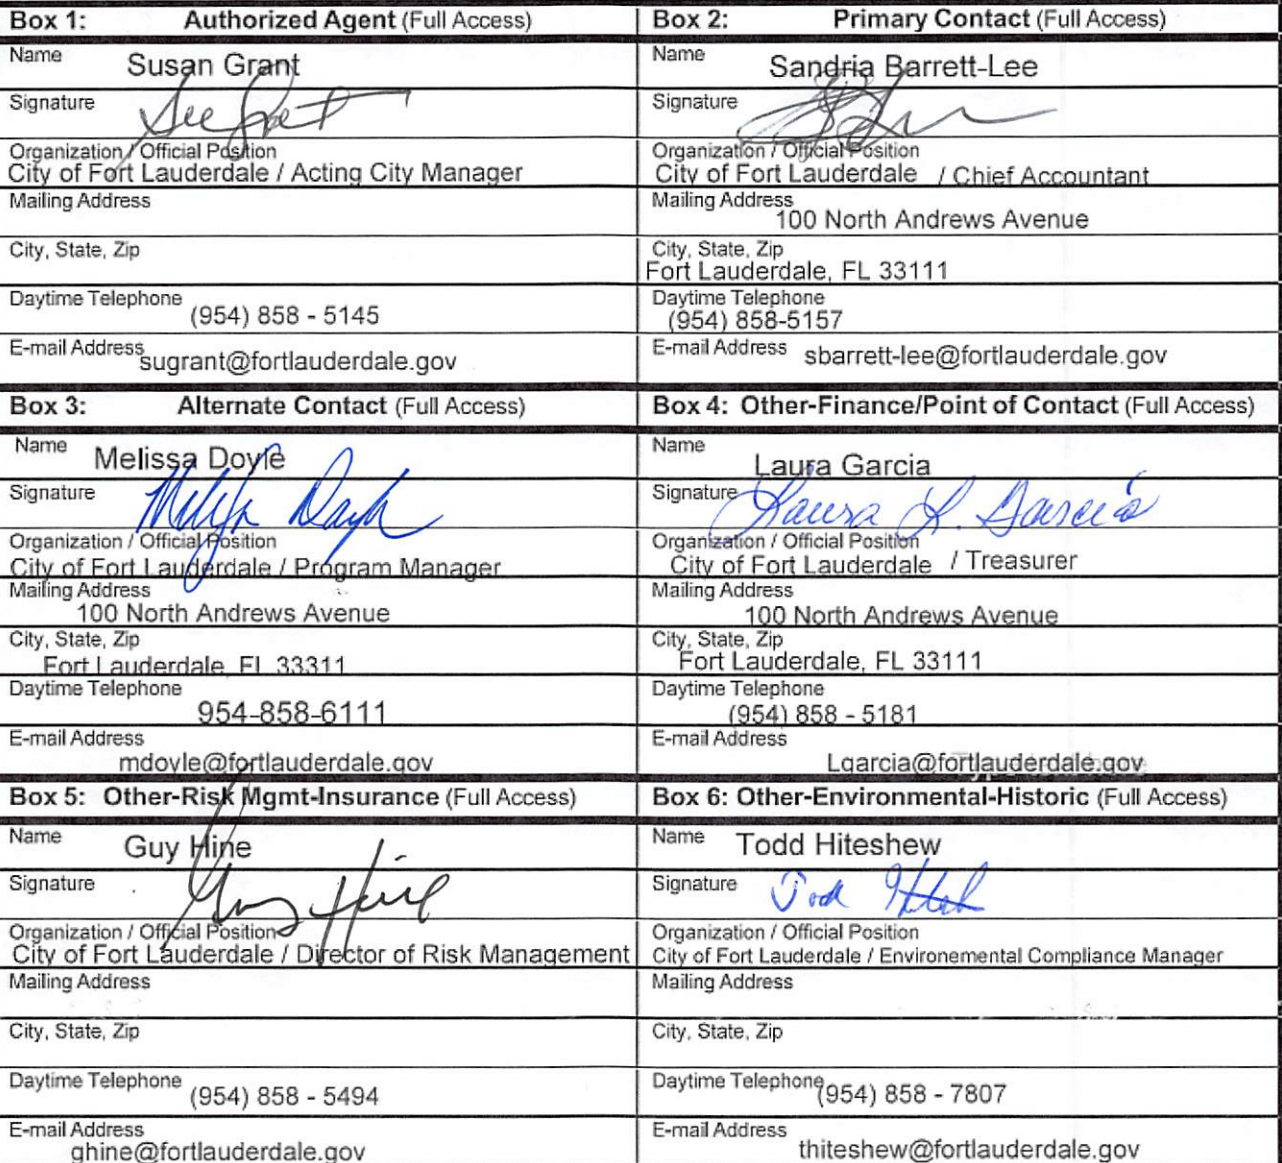 Box 1: Authorized Agent (Full Access)
Name Susan Grant
Signature Sue Grant
Organization / Official Position
City of Fort Lauderdale / Acting City Manager
Mailing Address
City, State, Zip
Daytime Telephone (954) 858 - 5145
E-mail Address sugrant@fortlauderdale.gov
Box 2: Primary Contact (Full Access)
Name Sandria Barrett-Lee
Signature
Organization / Official Position
City of Fort Lauderdale / Chief Accountant
Mailing Address
100 North Andrews Avenue
City, State, Zip
Fort Lauderdale, FL 33111
Daytime Telephone
(954) 858-5157
E-mail Address sbarrett-lee@fortlauderdale.gov
Box 3: Alternate Contact (Full Access)
Name Melissa Doyle
Signature
Organization / Official Position
City of Fort Lauderdale / Program Manager
Mailing Address
100 North Andrews Avenue
City, State, Zip
Fort Lauderdale, FL 33311
Daytime Telephone
954-858-6111
E-mail Address
mdoyle@fortlauderdale.gov
Box 4: Other-Finance/Point of Contact (Full Access)
Name
Laura Garcia
Signature Laura L. Garcia
Organization / Official Position
City of Fort Lauderdale / Treasurer
Mailing Address
100 North Andrews Avenue
City, State, Zip
Fort Lauderdale, FL 33111
Daytime Telephone
(954) 858 - 5181
E-mail Address
Lgarcia@fortlauderdale.gov
Box 5: Other-Risk Mgmt-Insurance (Full Access)
Name Guy Hine
Signature Guy Hine
Organization / Official Position
City of Fort Lauderdale / Director of Risk Management
Mailing Address
City, State, Zip
Daytime Telephone (954) 858 - 5494
E-mail Address
ghine@fortlauderdale.gov
Box 6: Other-Environmental-Historic (Full Access)
Name Todd Hiteshew
Signature
Organization / Official Position
City of Fort Lauderdale / Environemental Compliance Manager
Mailing Address
City, State, Zip
Daytime Telephone (954) 858 - 7807
E-mail Address
thiteshew@fortlauderdale.gov